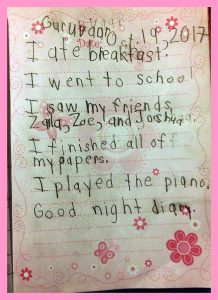 Guruvaar Oct. 19, 2017
I ate breakfast.
I went to school
I saw my friends,
Zaila, Zoe, and Joshua.
I finished all of
my papers.
I played the piano.
Good night diary.